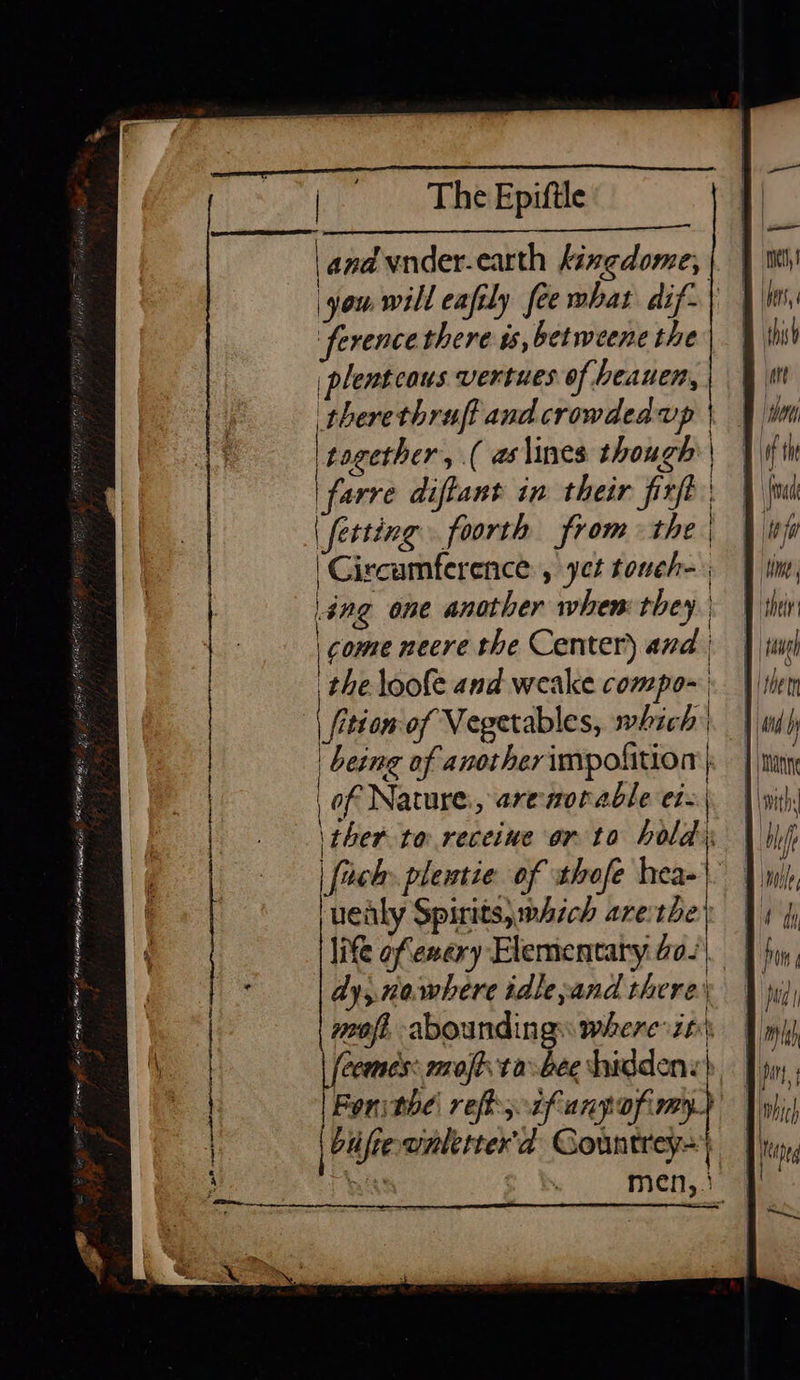 The Epiſtle
and vnder-earth kingdome,
you will eaſily ſee what dif-
ference there is, betweene the
plenteous vertues of heauen,
there thruſt and crowded vp
together, (as lines though
farre diſtant in their firſt
ſetting foorth from the
Circumference, yet touch-
ing one another when they
come neere the Center) and
the looſe and weake compo-
ſition of Vegetables, which
being of another impoſition
of Nature, are not able ei-
ther to receiue or to hold
ſuch plentie of thoſe hea-
uenly Spirits, which are the
life of euery Elementary bo-
dy, no where idle, and there
moſt abounding where it
ſeemes moſt to bee hidden.
For the reſt, if any of my
buſie vnletter'd Countrey-
men,